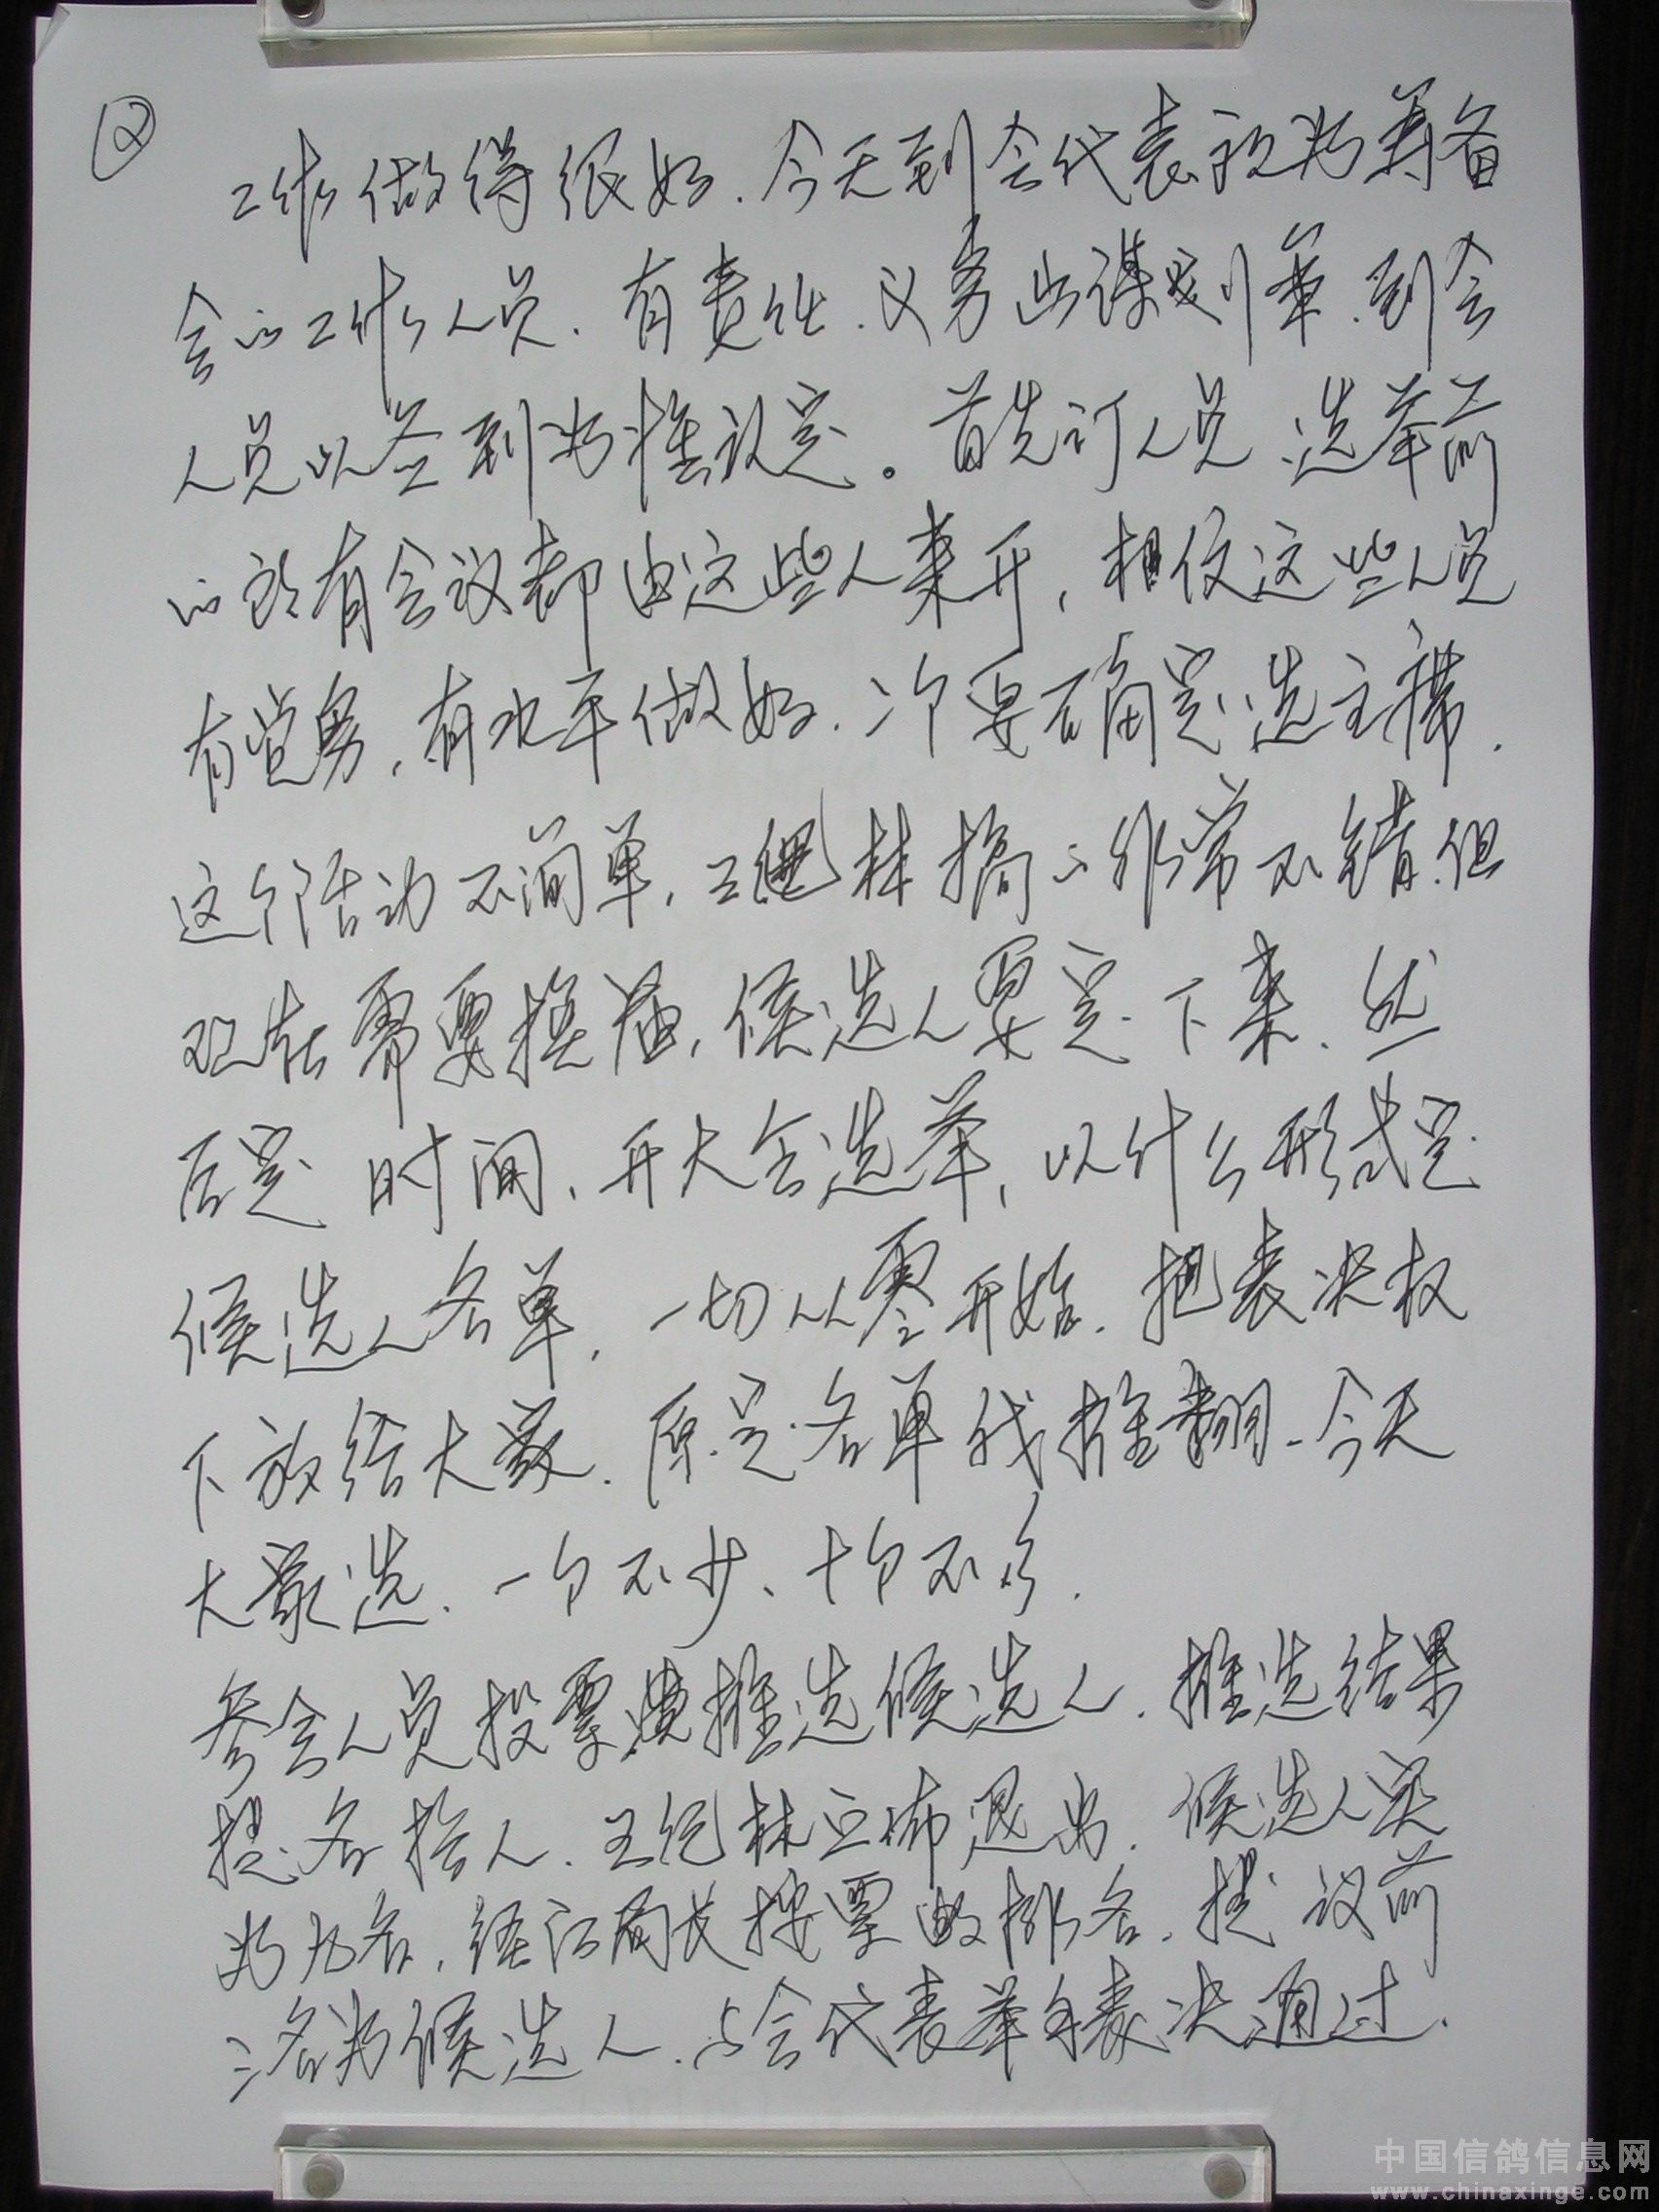 ②
工作做得很好.今天到会代表视为筹备
会的工作人员.有责任.义务出谋划策.到会
人员以签到为准认定。首先订人员 选举前
的所有会议都由这些人来开,相信这些人员
有觉悟,有水平做好.二个要确定选主席.
这个活动不简单,王纪林搞的非常不错.但
现在需要换届,候选人要定下来.然
后定 时间、开大会选举,以什么形式定
候选人名单,一切从零开始.把表决权
下放给大家.原定名单我推翻.今天
大家选.一个不少、十个不多.
参会人员投票推选候选人.推选结果
提名拾人.王纪林宣布退出.候选人实
为九名,经江局长按票数排名.提议前
三名为候选人.与会代表举手表决通过.
中国信鸽信息网
www.chinaxinge.com